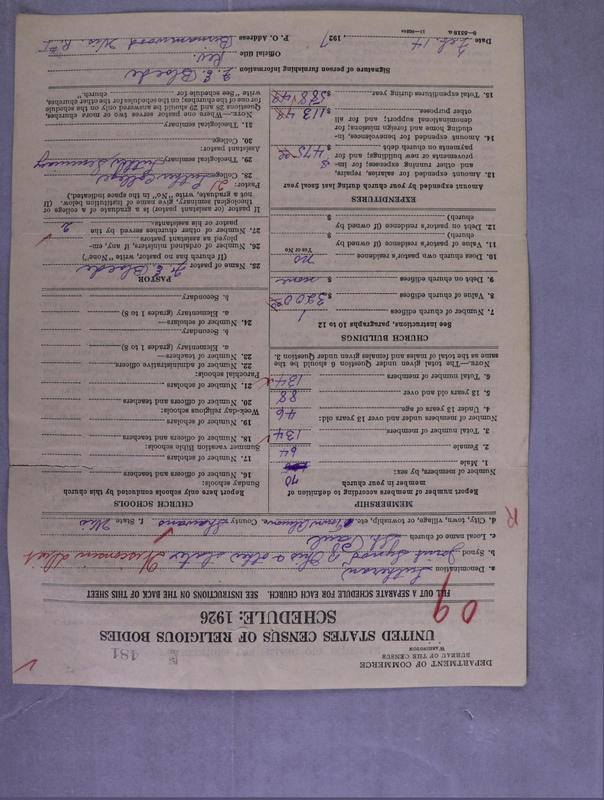 DEPARTMENT OF COMMERCE
BUREAU OF THE CENSUS
WASHINGTON
481
UNITED STATES CENSUS OF RELIGIOUS BODIES
SCHEDULE: 1926
09
FILL OUT A SEPARATE SCHEDULE FOR EACH CHURCH. SEE INSTRUCTIONS ON THE BACK OF THIS SHEET
a. Denomination Lutheran
b. Synod Joint Synod of Ohio & other states Wisconsin Dist
c. Local name of church St. Paul
d. City, town, village, or township, etc. Town County Shawano f. State Wis
R
MEMBERSHIP
Report number of members according to definition of member in your church
Number of members, by sex:
1. Male 70
2. Female 64
3. Total number of members 134
Number of members under and over 13 years old:
4. Under 13 years of age 46
5. 13 years old and over 88
6. Total number of members 134
NOTE.—The total given under Question 6 should be the same as the total of males and females given under Question 3.
CHURCH BUILDINGS
See instructions, paragraphs 10 to 12
7. Number of church edifices 1
8. Value of church edifices $ 3200.00
9. Debt on church edifices $ none
10. Does church own pastor's residence no
Yes or No
11. Value of pastor's residence (if owned by church) $
12. Debt on pastor's residence (if owned by church) $
EXPENDITURES
Amount expended by your church during last fiscal year
13. Amount expended for salaries, repairs, and other running expenses; for improvements or new buildings; and for payments on church debt $ 475
14. Amount expended for benevolences, including home and foreign missions; for denominational support; and for all other purposes $ 113.48
15. Total expenditures during year $ 588.48
CHURCH SCHOOLS
Report here only schools conducted by this church
Sunday schools:
16. Number of officers and teachers
17. Number of scholars
Summer vacation Bible schools:
18. Number of officers and teachers
19. Number of scholars
Week-day religious schools:
20. Number of officers and teachers
21. Number of scholars
Parochial schools:
22. Number of administrative officers
23. Number of teachers—
a. Elementary (grades 1 to 8)
b. Secondary
24. Number of scholars—
a. Elementary (grades 1 to 8)
b. Secondary
PASTOR
25. Name of pastor F. E. Bloede
(If church has no pastor, write "None")
26. Number of ordained ministers, if any, employed as assistant pastors
27. Number of other churches served by the pastor or his assistants 2
If pastor (or assistant pastor) is a graduate of a college or theological seminary, give name of institution below. (If not a graduate, write "No" in the space indicated.)
Pastor:
28. College Luther College
29. Theological seminary Luther Seminary
Assistant pastor:
30. College
31. Theological seminary
NOTE.—Where one pastor serves two or more churches, Questions 28 and 29 should be answered only on the schedule for one of the churches; on the schedules for the other churches, write "See schedule for church."
Signature of person furnishing information F. E. Bloede
Official title Rev.
Date Feb. 14, 1927 P. O. Address Birnamwood Wis. R #1